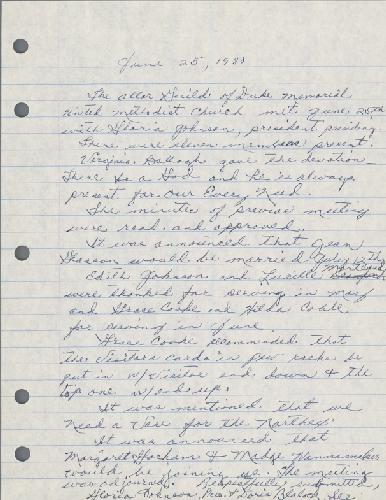 June 25, 1980
The altar Guild of Duke Memorial
United Methodist Church met June 25th
with Gloria Johnson, president presiding
There were eleven members present.
Virginia gave the devotion
There is a God and He is always
present for our Every Need.
The minutes of previous meeting
were read and approved.
It was announced that Jean
would be married July 12th
Edith Johnson and Lucille
were thanked for serving in may
and Grace Cooke and Hilda Coble
for serving in June.
Grace Cooke recommended that
the Visitors cards in pew racks be
put in w/ visitor end down & the
top one w/ ends up.
It was mentioned that we
need a Vase for the Narthex.
It was announced that
Margaret & Madge Wannamaker
would be joining us. The meeting
was adjourned. Respectfully submitted,
Gloria Johnson, Pres. & Doris Sec.